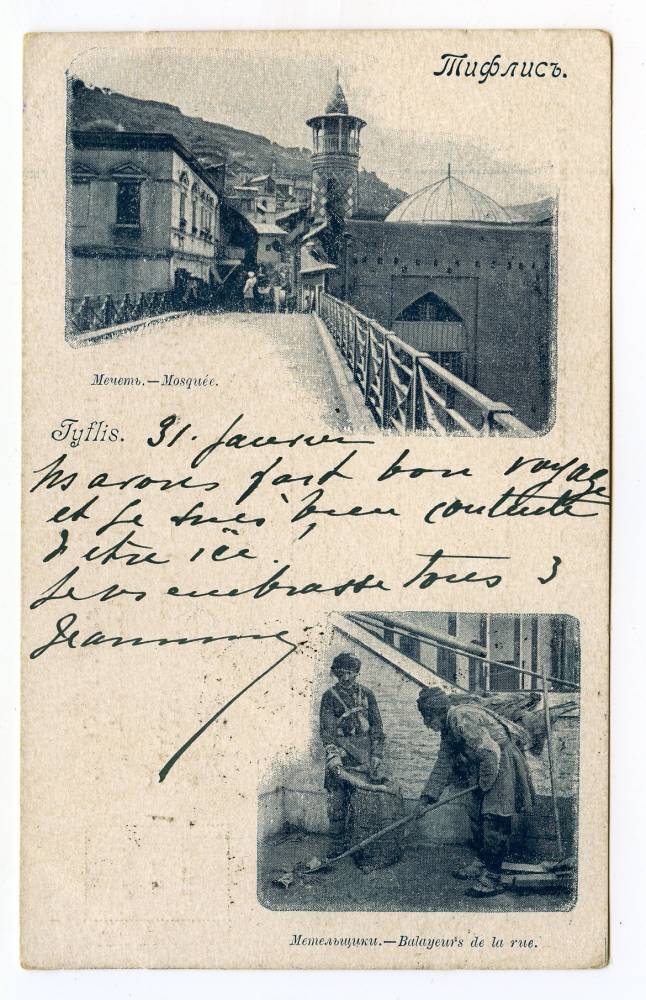 Тифлисъ.
Мечеть.—Mosquée.
Tyflis. 31. Janvier
Ns avons fait bon voyage
et je suis bien contente
d'être ici.
Je vs embrasse tous 3
Jeanne
Метельщики.—Balayeurs de la rue.